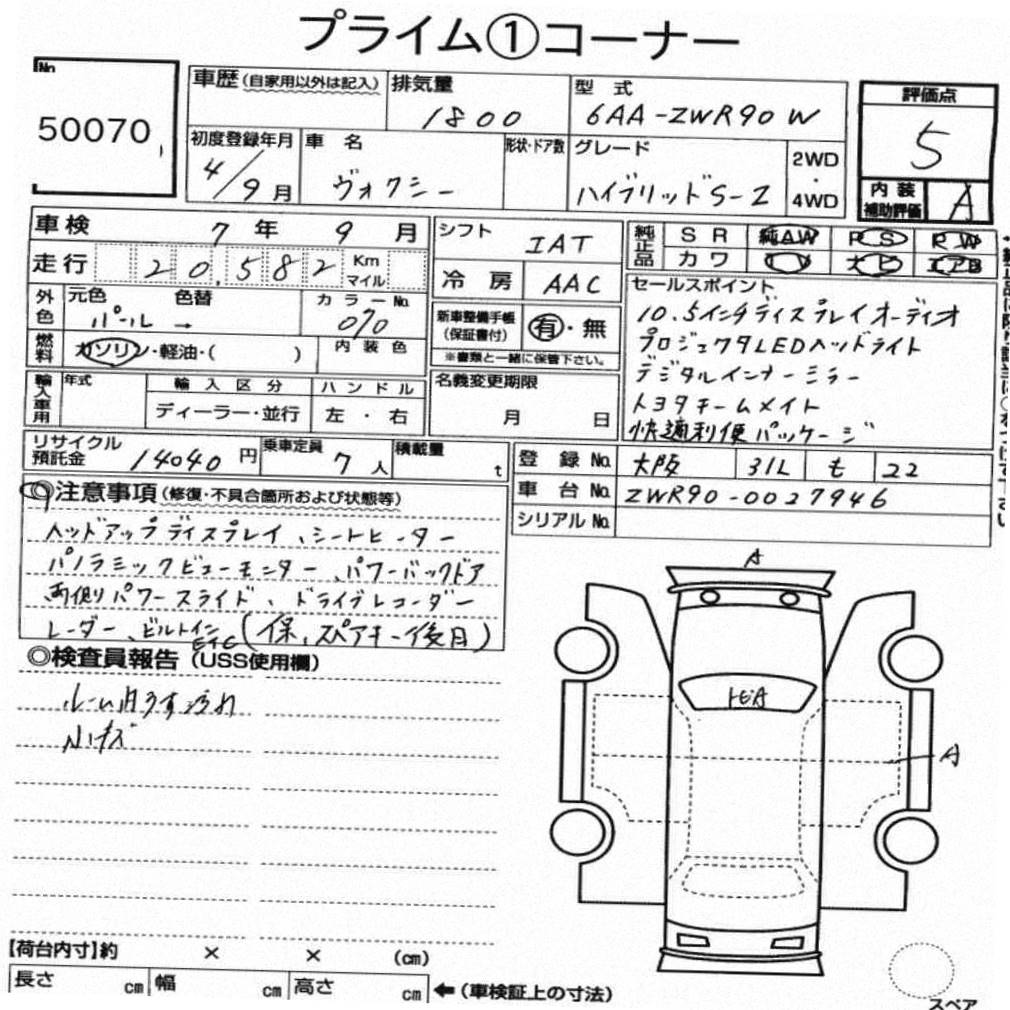 プライム①コーナー
No. 50070
車歴 (自家用以外は記入)
排気量 1800
型式 6AA-ZWR90W
評価点 5
内装補助評価 A
初度登録年月 4/9月
車名 ヴォクシー
形状・ドア数
グレード ハイブリッドS-Z
2WD・4WD
車検 7年 9月
走行 20,582 Km マイル
シフト IAT
冷房 AAC
純正品 SR 純AW PS PW
カワ ナビ エアB
外色 元色 パール → 色替
カラーNo. 070
燃料 ガソリン・軽油・( )
内装色
新車整備手帳(保証書付) 有・無
※書類と一緒に保管下さい。
セールスポイント
10.5インチディスプレイオーディオ
プロジェクタLEDヘッドライト
デジタルインナーミラー
トヨタチームメイト
快適利便パッケージ
輸入車用 年式
輸入区分 ディーラー・並行
ハンドル 左・右
名義変更期限 月 日
リサイクル預託金 14040円
乗車定員 7人
積載量 t
登録No. 大阪 31L も 22
車台No. ZWR90-0027946
シリアルNo.
◎注意事項 (修復・不具合箇所および状態等)
ヘッドアップディスプレイ、シートヒーター
パノラミックビューモニター、パワーバックドア
両側パワースライド、ドライブレコーダー
レーダー、ビルトインETC(保、スペアキー後日)
◎検査員報告 (USS使用欄)
ルーム内うす汚れ
小キズ
A
A
【荷台内寸】約 × × (cm)
長さ cm 幅 cm 高さ cm ←(車検証上の寸法)
スペア